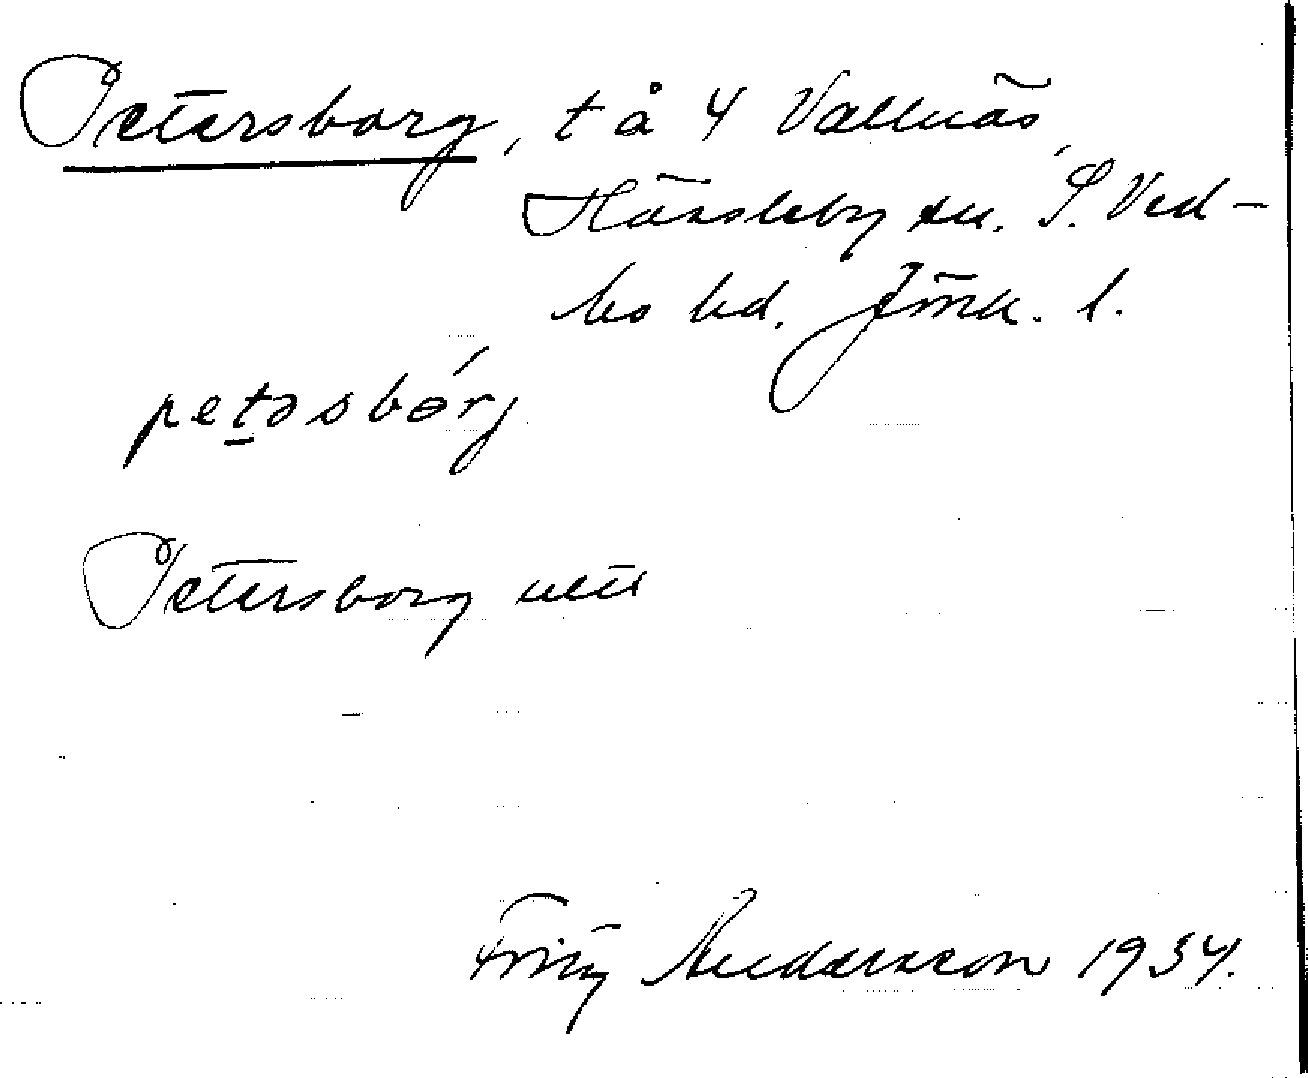 Petersborg, t å 4 Vallnäs,
Hässleby sn. S. Ved-
bo hd. Jönk. l.
petəsbórj
Petersborg
Fritz Andersson 1934.